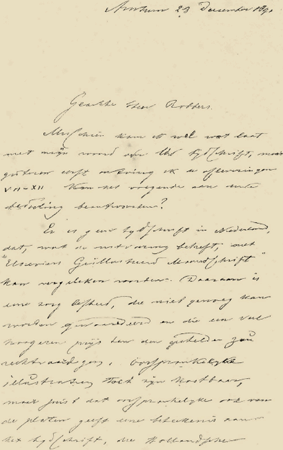 Arnhem 23 December 189
Geachte Heer Robbers.
Misschien kom ik wel wat laat
met mijn woord over Uw tijdschrift, maar
gisteren eerst ontving ik de afleveringen
VII-XII. Kan het volgende een korte
betuiging
Er is geen tijdschrift in Nederland,
dat, wat de uitvoering betreft, met
"Elseviers Geïllustreerd Maandschrift"
kan vergeleken worden. Daaraan is
eene zorg besteed, die niet genoeg kan
worden gewaardeerd en die een veel
hoogeren prijs dan den gestelden zou
rechtvaardigen. Oorspronkelijke
illustraties toch zijn kostbaar,
maar juist dat oorspronkelijke ook van
de platen geeft eene beteekenis aan
het tijdschrift, die Hollandsche